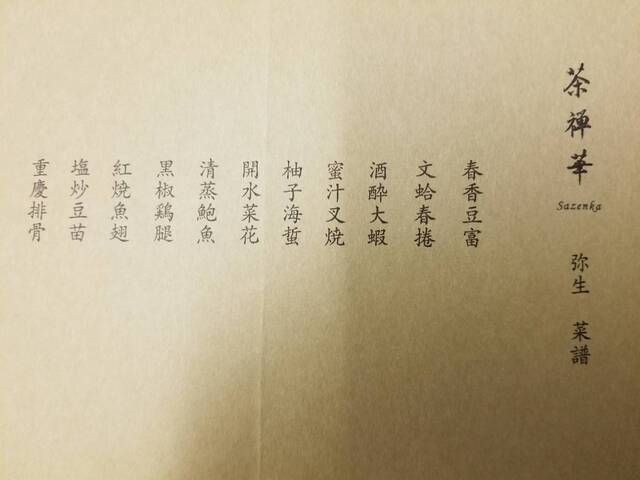 茶禅華
Sazenka
弥生 菜譜
春香豆富
文蛤春捲
酒酔大蝦
蜜汁叉焼
柚子海蜇
開水菜花
清蒸鮑魚
黒椒鶏腿
紅焼魚翅
塩炒豆苗
重慶排骨